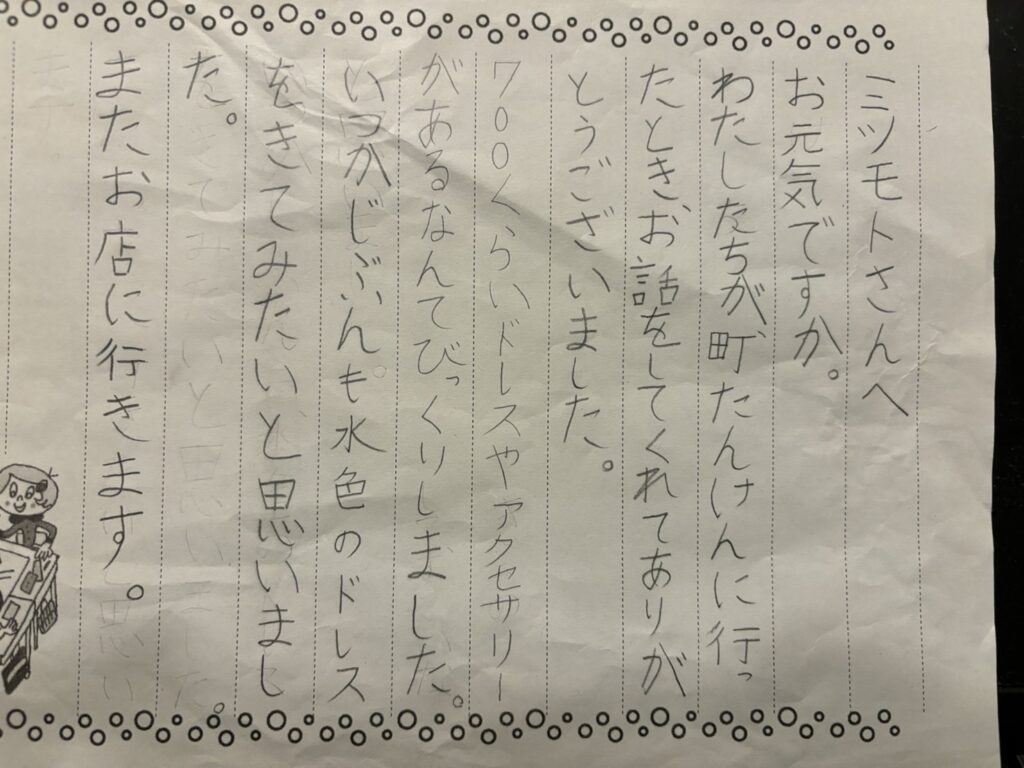 ミツモトさんへ
お元気ですか。
わたしたちが町たんけんに行っ
たときお話をしてくれてありが
とうございました。
700くらいドレスやアクセサリー
があるなんてびっくりしました。
いつかじぶんも水色のドレス
をきてみたいと思いまし
た。
またお店に行きます。